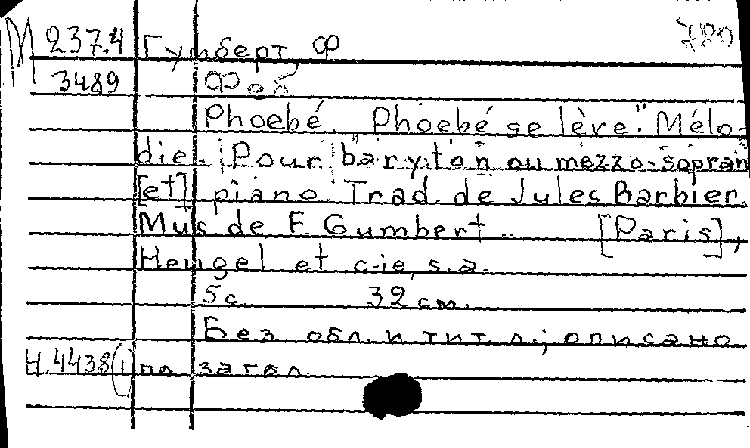 М 237.4 Гумберт, Ф 780
3489 Феб
Phoebé. "Phoebé se lève". Mélo-
die. Pour baryton ou mezzo-sopran
[et] piano. Trad. de Jules Barbier.
Mus. de F. Gumbert. [Paris],
Heugel et c-ie, s.a.
5 с. 32 см.
Без обл. и тит. л.; описано
Н 4438(1) по загол.